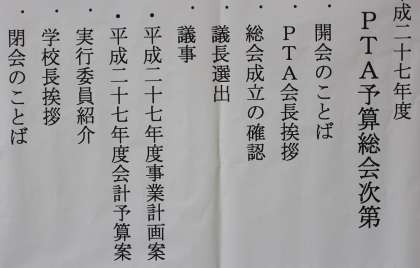 成二十七年度
PTA予算総会次第
・開会のことば
・PTA会長挨拶
・総会成立の確認
・議長選出
・議事
・平成二十七年度事業計画案
・平成二十七年度会計予算案
・実行委員紹介
・学校長挨拶
・閉会のことば